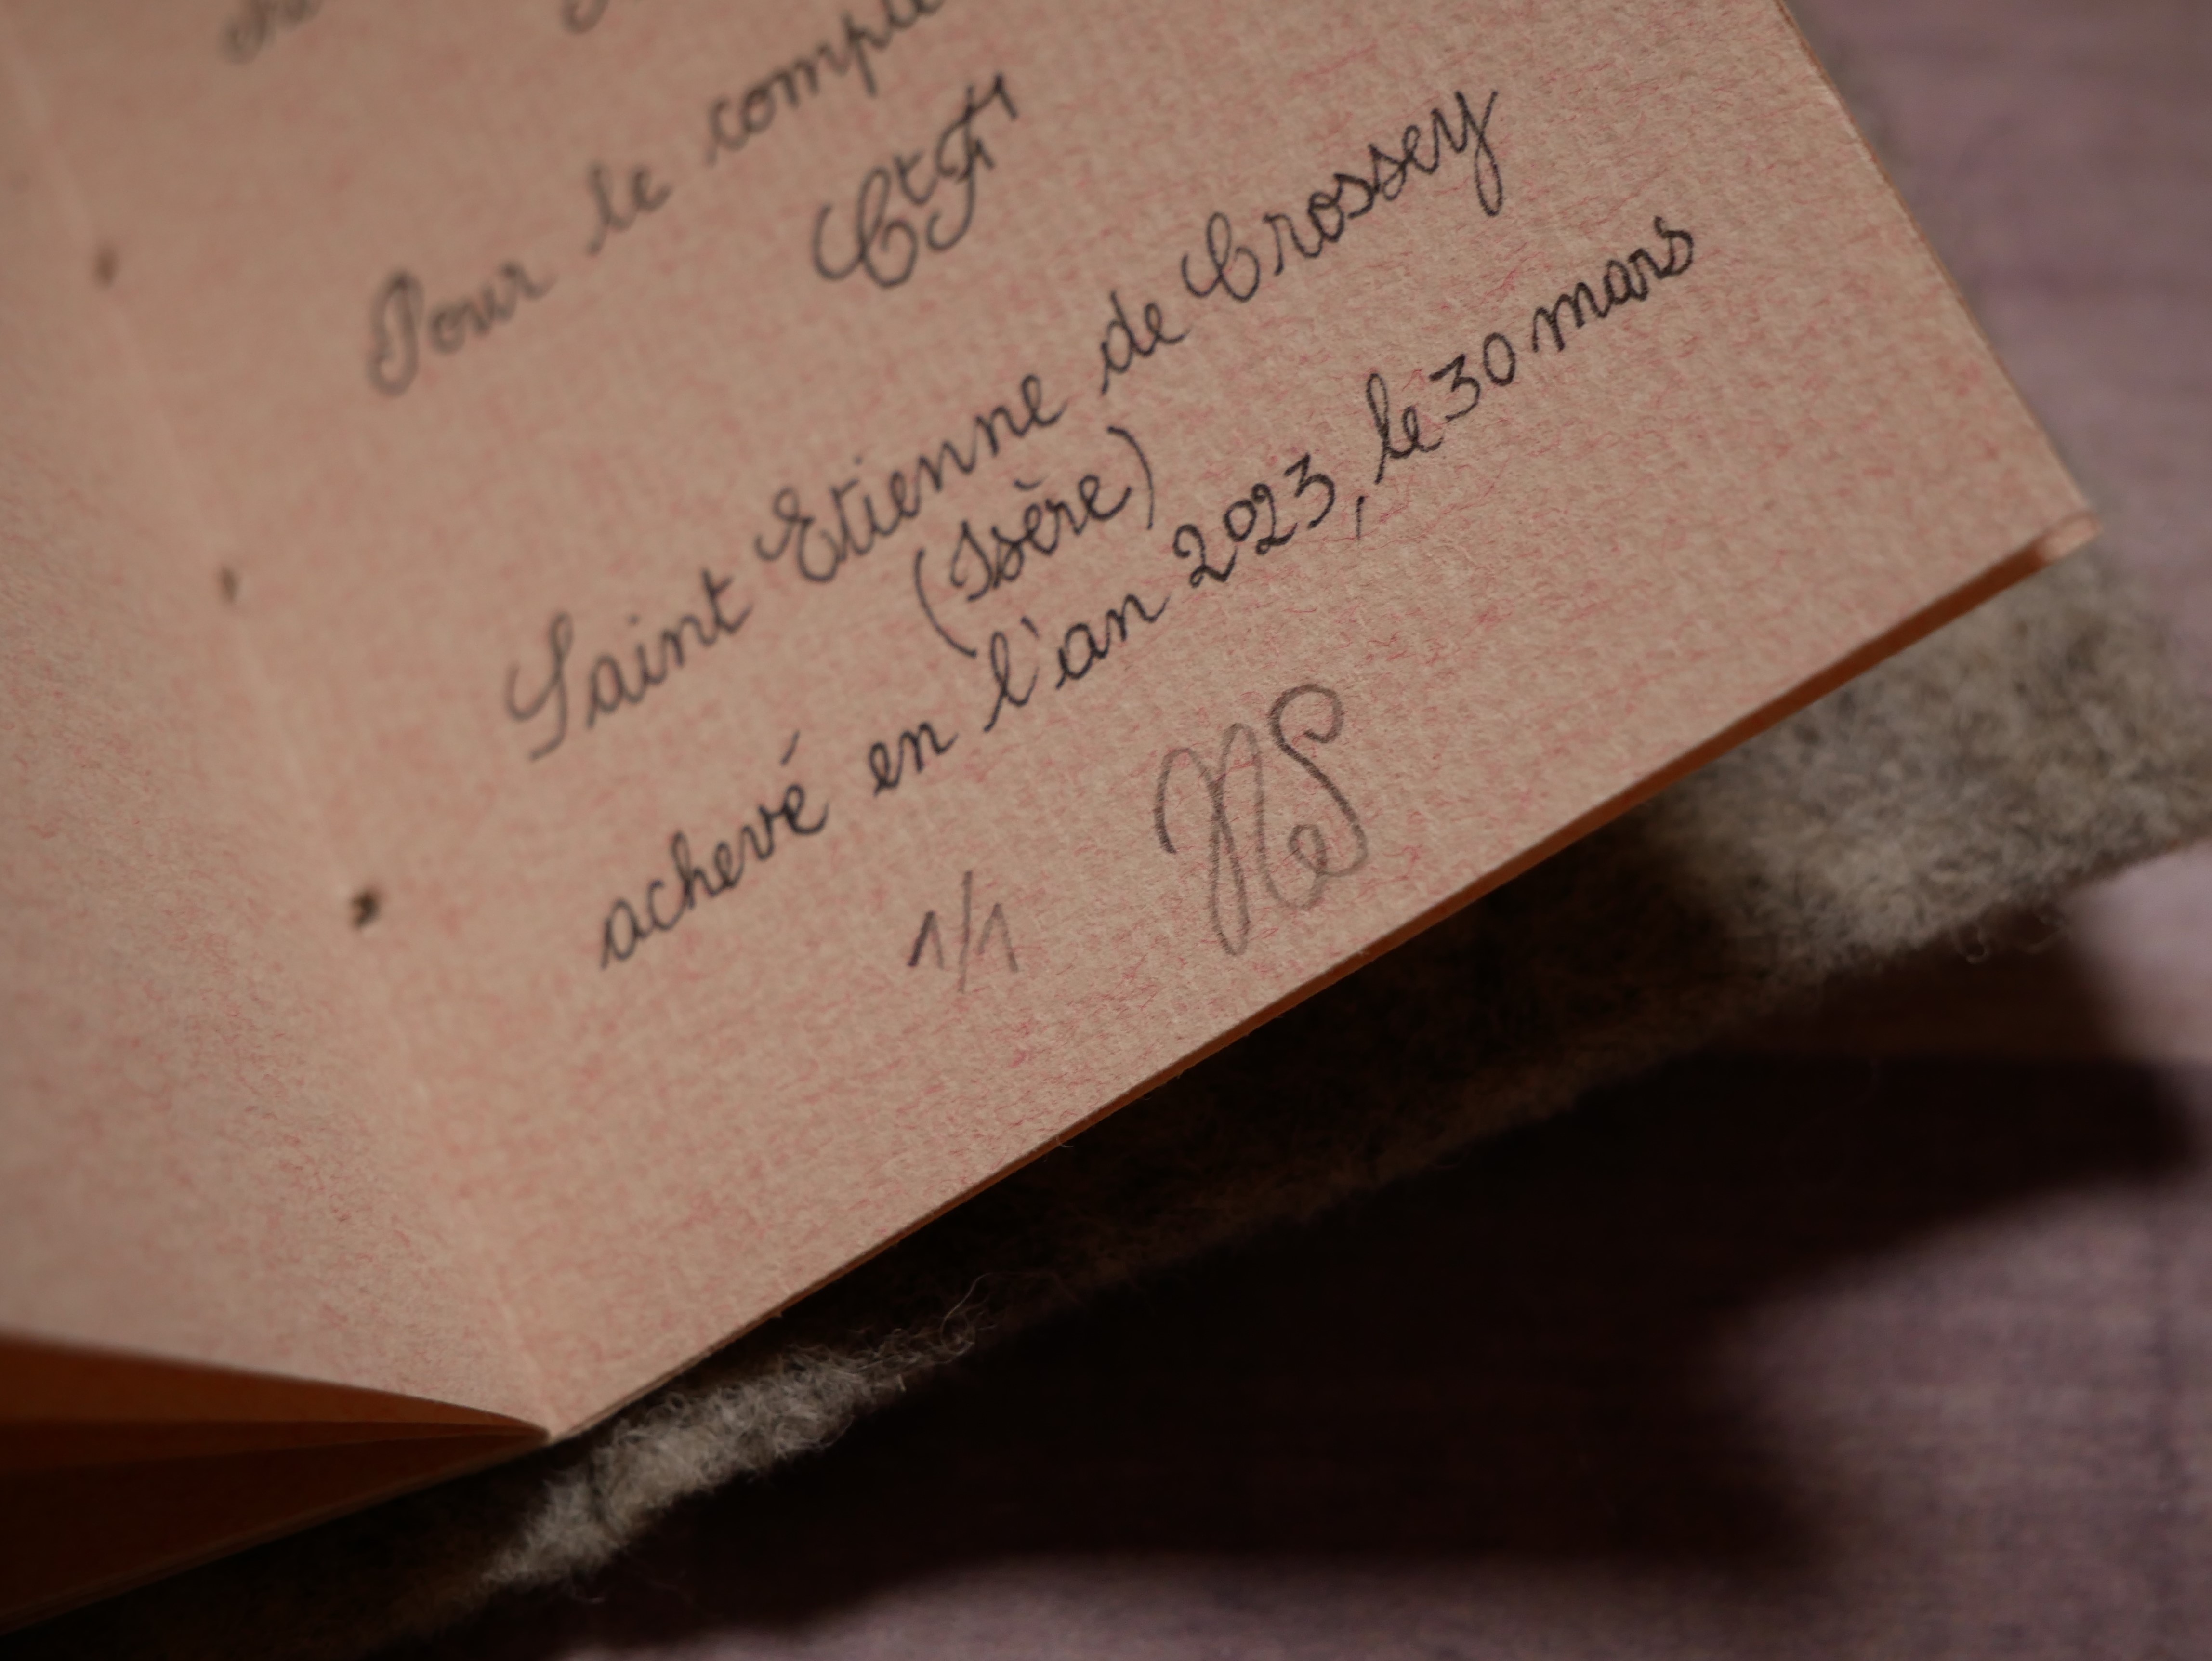 Pour le compte
Saint Etienne de Crossey
(Isère)
achevé en l'an 2023, le 30 mars
1/1